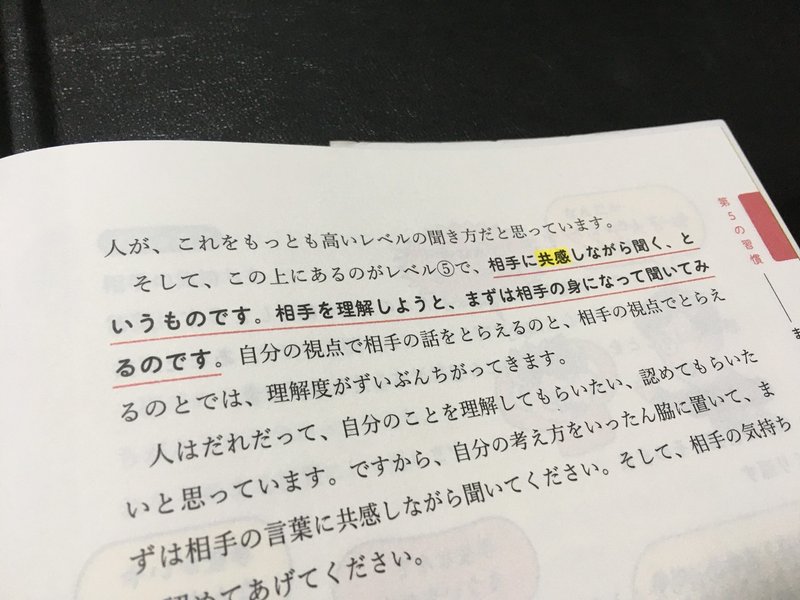 人が、これをもっとも高いレベルの聞き方だと思っています。
そして、この上にあるのがレベル⑤で、相手に共感しながら聞く、と
いうものです。相手を理解しようと、まずは相手の身になって聞いてみ
るのです。自分の視点で相手の話をとらえるのと、相手の視点でとらえ
るのとでは、理解度がずいぶんちがってきます。
人はだれだって、自分のことを理解してもらいたい、認めてもらいた
いと思っています。ですから、自分の考え方をいったん脇に置いて、ま
ずは相手の言葉に共感しながら聞いてください。そして、相手の気持ち
認めてあげてください。
第5の習慣